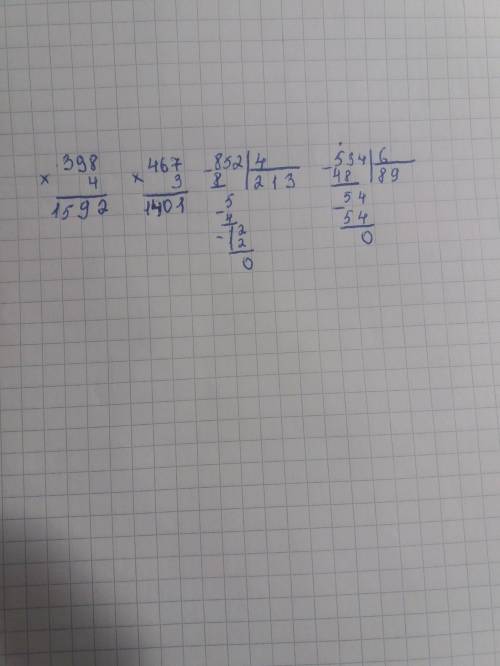 × 398
4
1592
× 467
3
1401
- 852 | 4
8 | 213
- 5
4
- 12
12
0
- 534 | 6
48 | 89
- 54
54
0